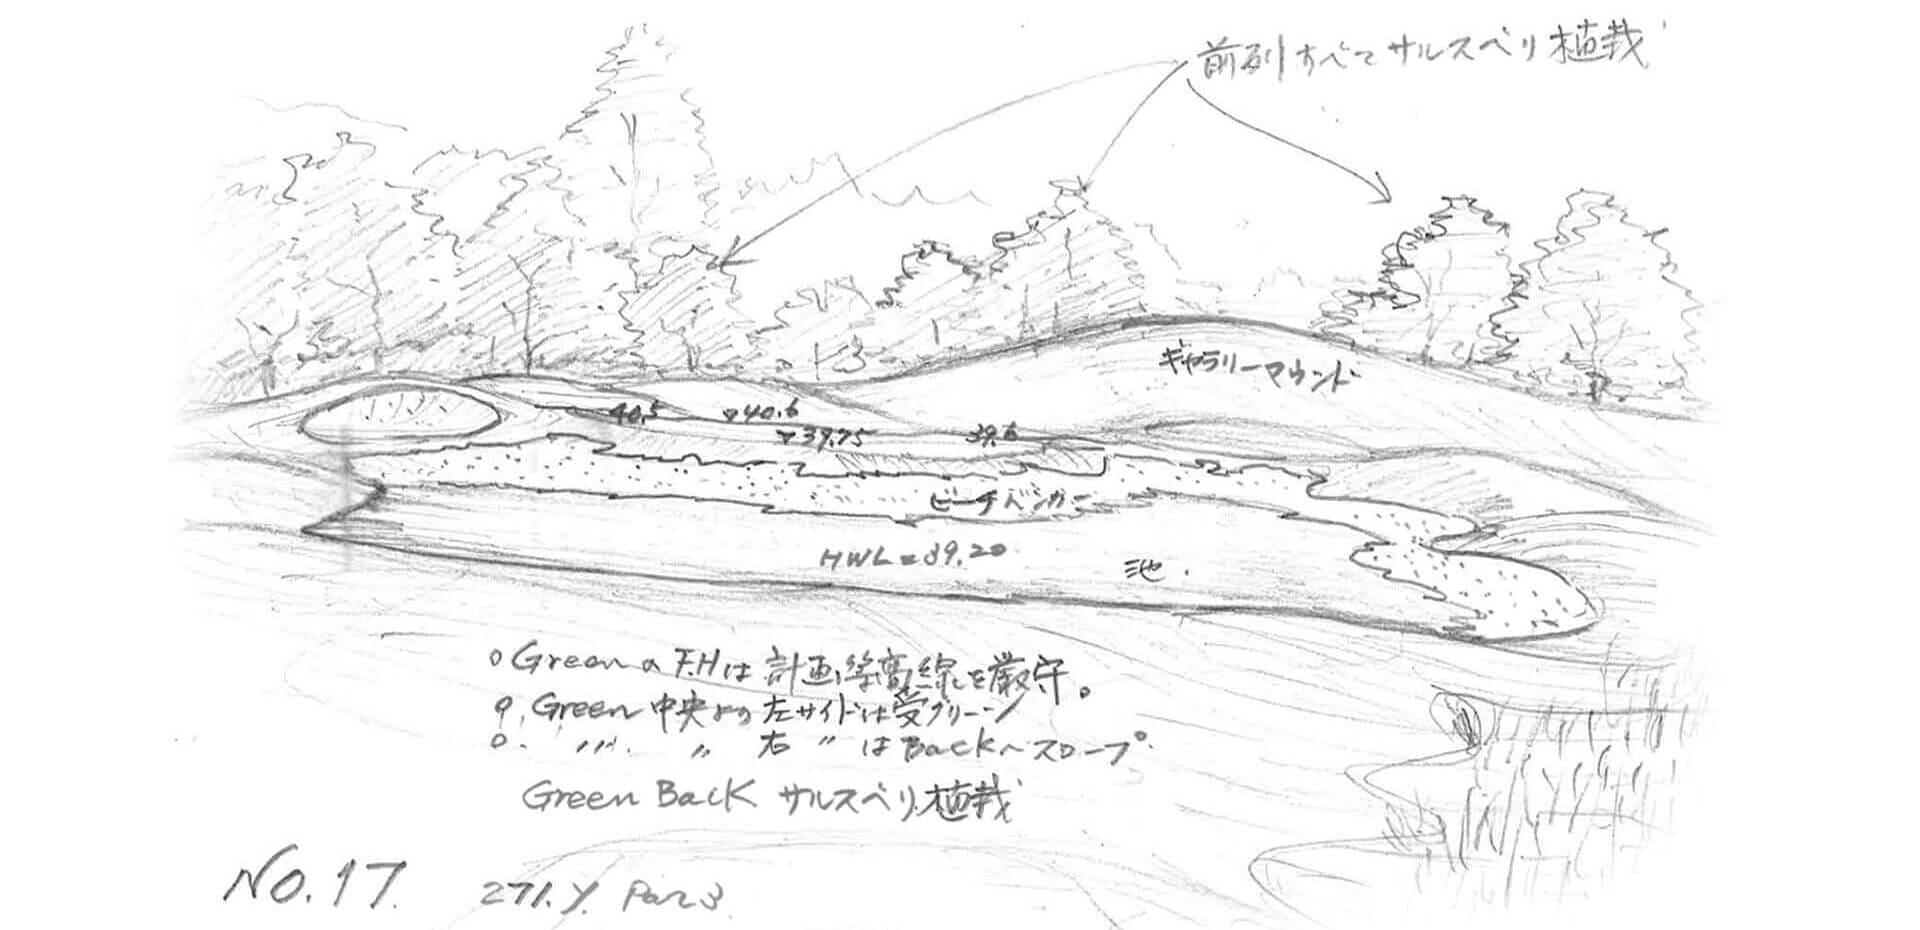 前列すべてサルスベリ植栽
ギャラリーマウンド
40.5
▽40.6
▽39.75
39.6
ビーチバンカー
HWL=39.20
池.
○Greenの F.Hは 計画等高線を厳守。
○. Green 中央より 左サイドは受グリーン
○. 〃〃. 〃 右 〃 はBackへスロープ。
Green Back サルスベリ植栽
No.17. 271.Y. Par 3